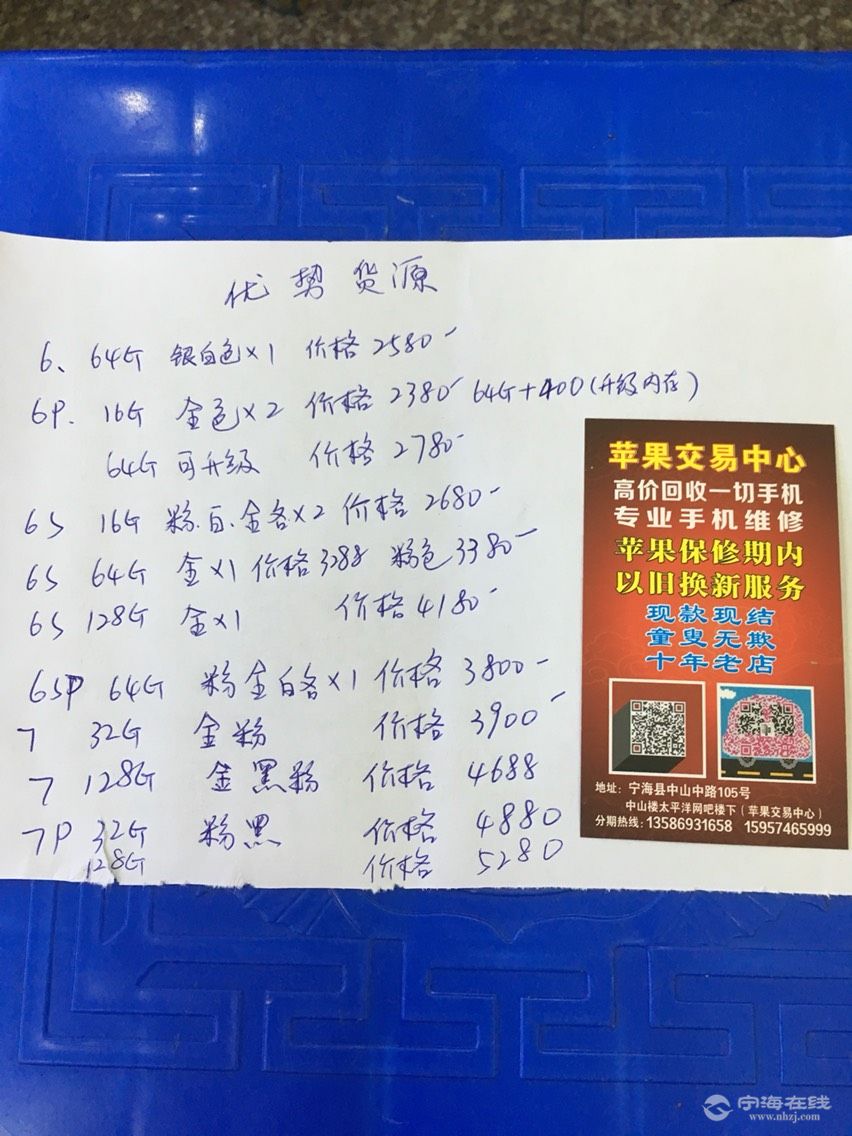 优势货源
6、 64G 银白色×1 价格 2580-
6P. 16G 金色×2 价格 2380- 64G+400(升级内存)
64G 可升级 价格 2780-
6S 16G 粉.白.金各×2 价格 2680-
6S 64G 金×1 价格3288 粉色3380-
6S 128G 金×1 价格4180-
6SP 64G 粉金白各×1 价格 3800-
7 32G 金粉 价格 3900-
7 128G 金黑粉 价格 4688
7P 32G 粉黑 价格 4880
128G 价格 5280
苹果交易中心
高价回收一切手机
专业手机维修
苹果保修期内
以旧换新服务
现款现结
童叟无欺
十年老店
地址：宁海县中山中路105号
中山楼太平洋网吧楼下（苹果交易中心）
分期热线：13586931658 15957465999
宁海在线
www.nhzj.com